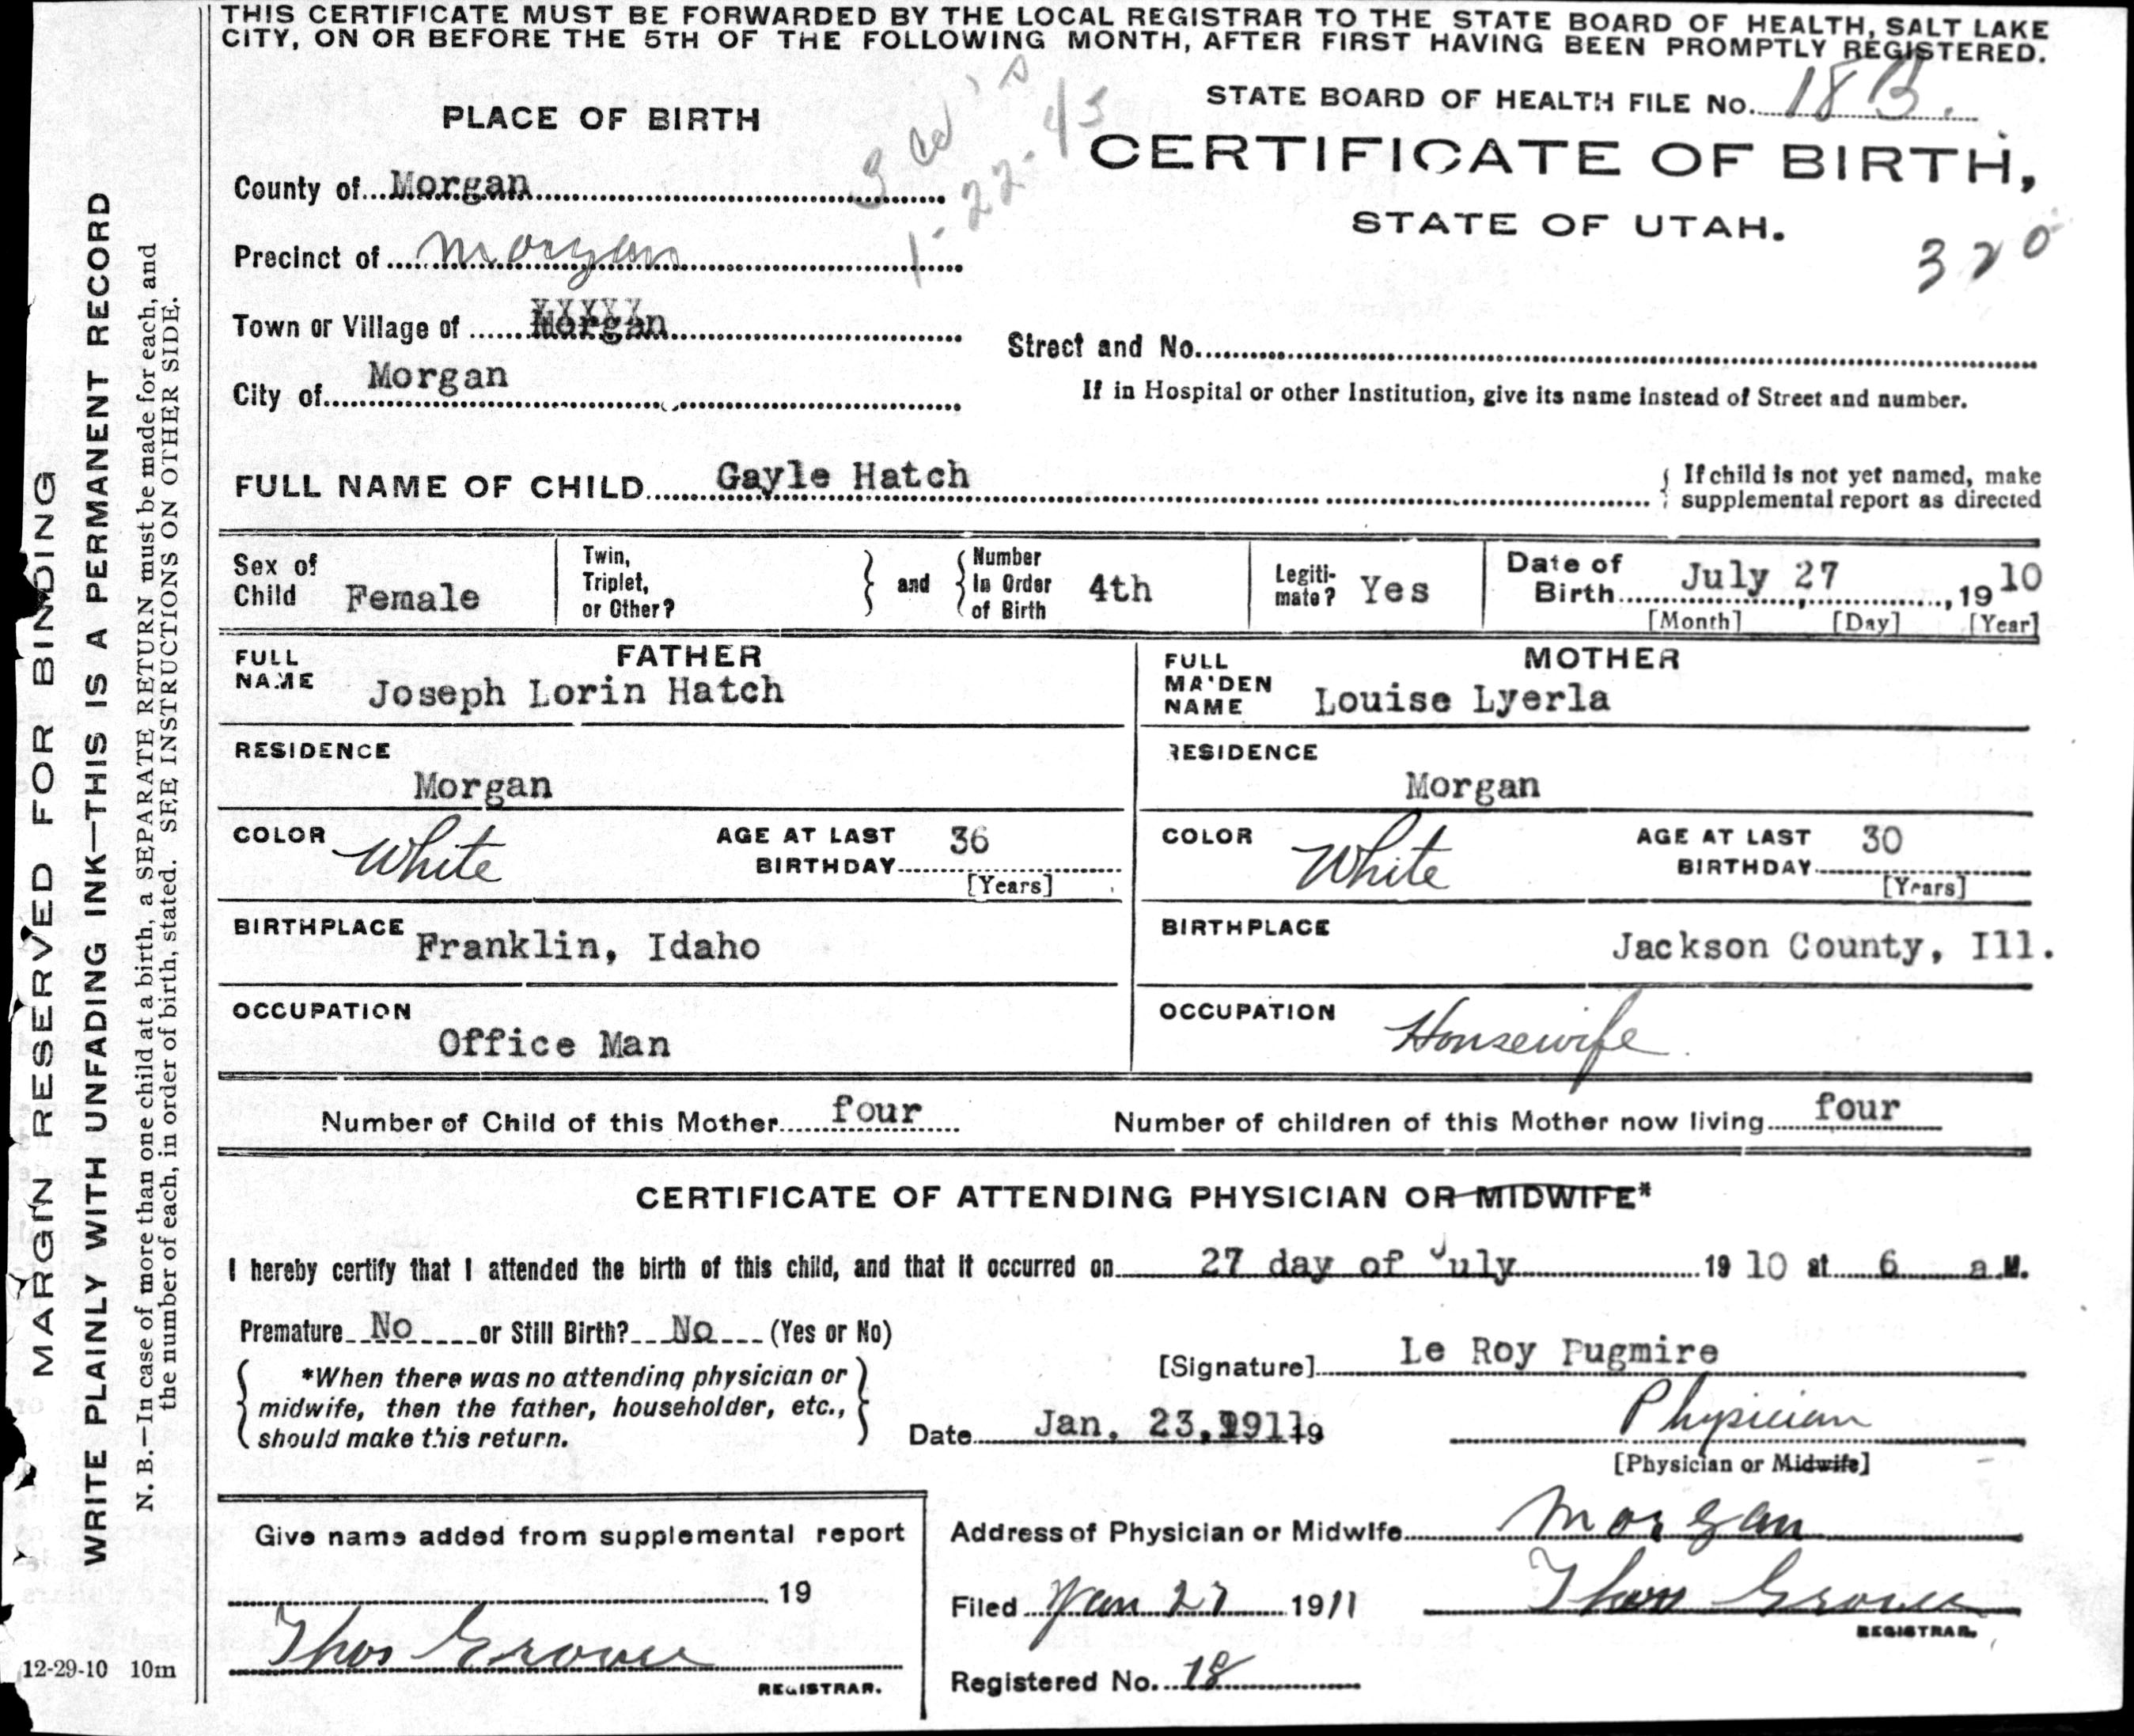 THIS CERTIFICATE MUST BE FORWARDED BY THE LOCAL REGISTRAR TO THE STATE BOARD OF HEALTH, SALT LAKE
CITY, ON OR BEFORE THE 5TH OF THE FOLLOWING MONTH, AFTER FIRST HAVING BEEN PROMPTLY REGISTERED.
STATE BOARD OF HEALTH FILE No. 18 B.
PLACE OF BIRTH
3 cd's
1-22-43
CERTIFICATE OF BIRTH,
STATE OF UTAH.
320
County of Morgan
Precinct of Morgan
Town or Village of Morgan
XXXXX
Street and No.
City of Morgan
If in Hospital or other Institution, give its name instead of Street and number.
FULL NAME OF CHILD Gayle Hatch
If child is not yet named, make
supplemental report as directed
Sex of
Child Female
Twin,
Triplet,
or Other?
and
Number
in Order
of Birth 4th
Legiti-
mate? Yes
Date of
Birth July 27, 1910
[Month] [Day] [Year]
FATHER
FULL
NAME Joseph Lorin Hatch
MOTHER
FULL
MAIDEN
NAME Louise Lyerla
RESIDENCE
Morgan
RESIDENCE
Morgan
COLOR White
AGE AT LAST
BIRTHDAY 36
[Years]
COLOR White
AGE AT LAST
BIRTHDAY 30
[Years]
BIRTHPLACE Franklin, Idaho
BIRTHPLACE Jackson County, Ill.
OCCUPATION
Office Man
OCCUPATION Housewife
Number of Child of this Mother four
Number of children of this Mother now living four
CERTIFICATE OF ATTENDING PHYSICIAN OR MIDWIFE*
I hereby certify that I attended the birth of this child, and that it occurred on 27 day of July 1910 at 6 a M.
Premature No or Still Birth? No (Yes or No)
*When there was no attending physician or
midwife, then the father, householder, etc.,
should make this return.
[Signature] Le Roy Pugmire
Date Jan. 23, 1911 19
Physician
[Physician or Midwife]
Give name added from supplemental report
19
Thos Grover
REGISTRAR.
Address of Physician or Midwife Morgan
Filed Jan 27 1911
Thos Grover
REGISTRAR.
Registered No. 18
12-29-10 10m
MARGIN RESERVED FOR BINDING
WRITE PLAINLY WITH UNFADING INK—THIS IS A PERMANENT RECORD
N. B.—In case of more than one child at a birth, a SEPARATE RETURN must be made for each, and
the number of each, in order of birth, stated. SEE INSTRUCTIONS ON OTHER SIDE.